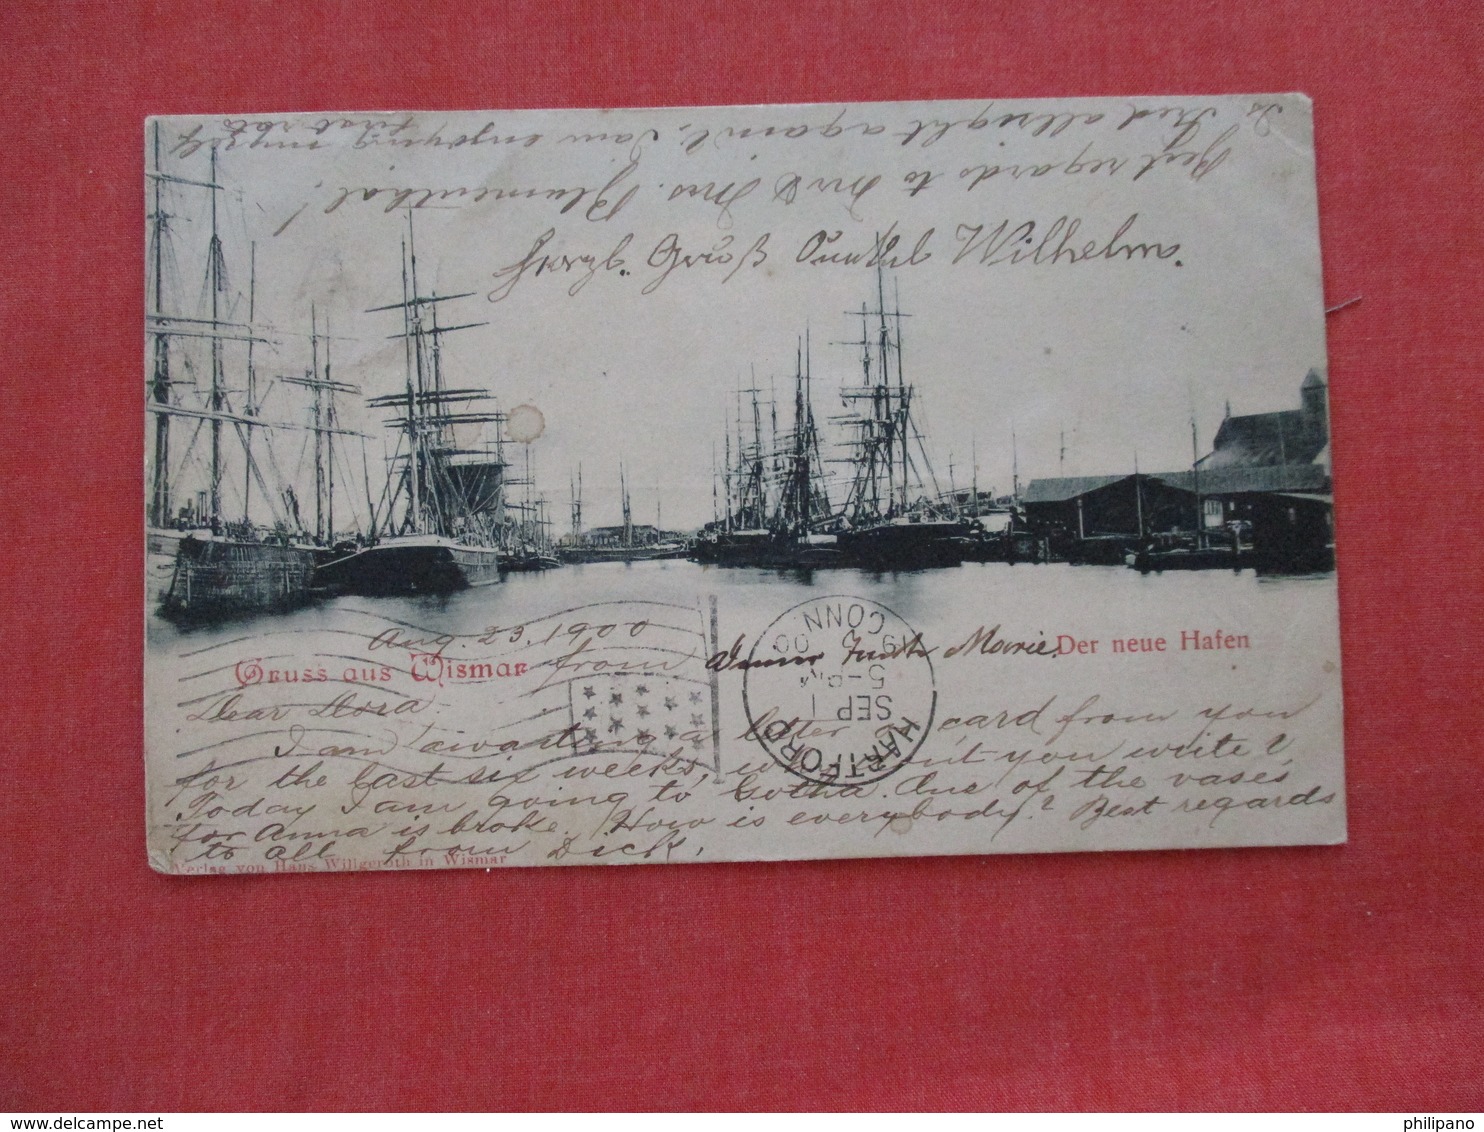 Is Fred allright again? I am enjoying myself first rate
Best regards to Mr & Mrs. Blumenthal!
Herzl. Gruß Onkel Wilhelm
Aug. 23, 1900
Gruss aus Wismar
from
Marie.
Der neue Hafen
HARTFORD CONN.
SEP 1
5-
00
Dear Dora -
I am awaiting a letter or card from you
for the last six weeks, why don't you write?
Today I am going to Gotha. One of the vases
for Anna is broke. How is everybody? Best regards
to all from Dick.
Verlag von Hans Willgeroth in Wismar
philipano
delcampe.net